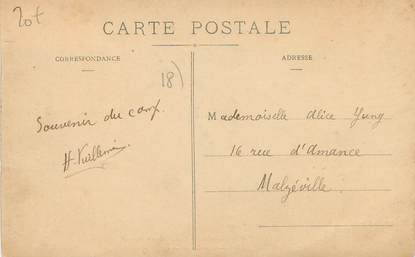 20t
CARTE POSTALE
CORRESPONDANCE
ADRESSE
18)
Souvenir du camp.
H. Vuillemin.
Mademoiselle Alice Yung
16 rue d'Amance
Malzéville.